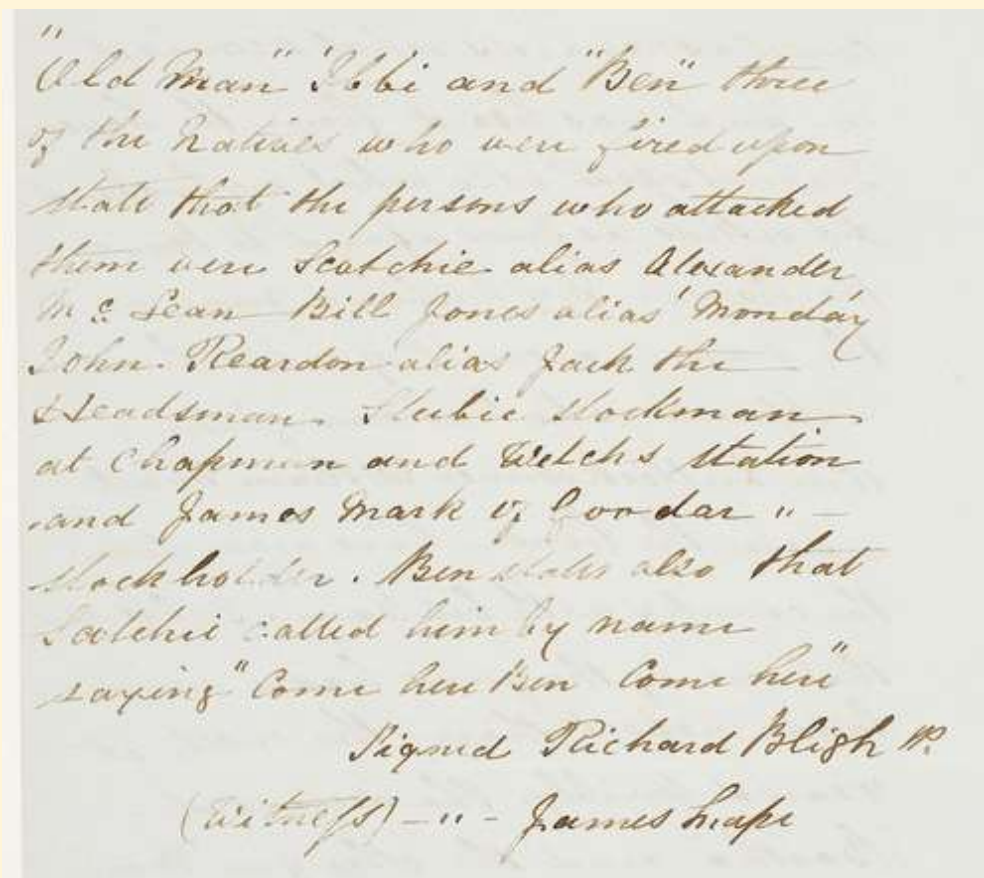 "Old Man" 'Ibbi and "Ben" three
of the Natives who were fired upon
state that the persons who attacked
them were Scotchie alias Alexander
McLean Bill Jones alias 'Monday'
John Reardon alias Jack the
Headsman. Stubie stockman
at Chapman and Welchs station
and James Mark of Goodar " -
stockholder. Ben states also that
Satchie called him by name
saying "Come here Ben Come here"
Signed Richard Bligh
(Witness) - " - James